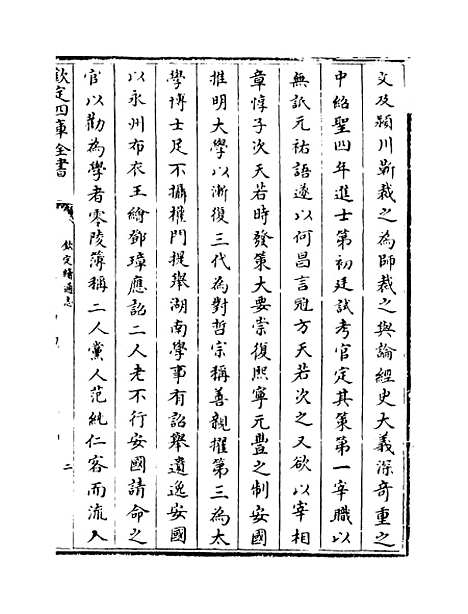 文及潁川靳裁之為師裁之與論經史大義深奇重之
中紹聖四年進士第初廷試考官定其策第一宰職以
無詆元祐語遂以何昌言冠方天若次之又欲以宰相
章惇子次天若時發策大要崇復熙寧元豐之制安國
推明大學以漸復三代為對哲宗稱善親擢第三為太
學博士足不攝權門提舉湖南學事有詔舉遺逸安國
以永州布衣王繪鄧璋應詔二人老不行安國請命之
官以勸為學者零陵簿稱二人黨人范純仁客而流入
欽定四庫全書
欽定續通志
二